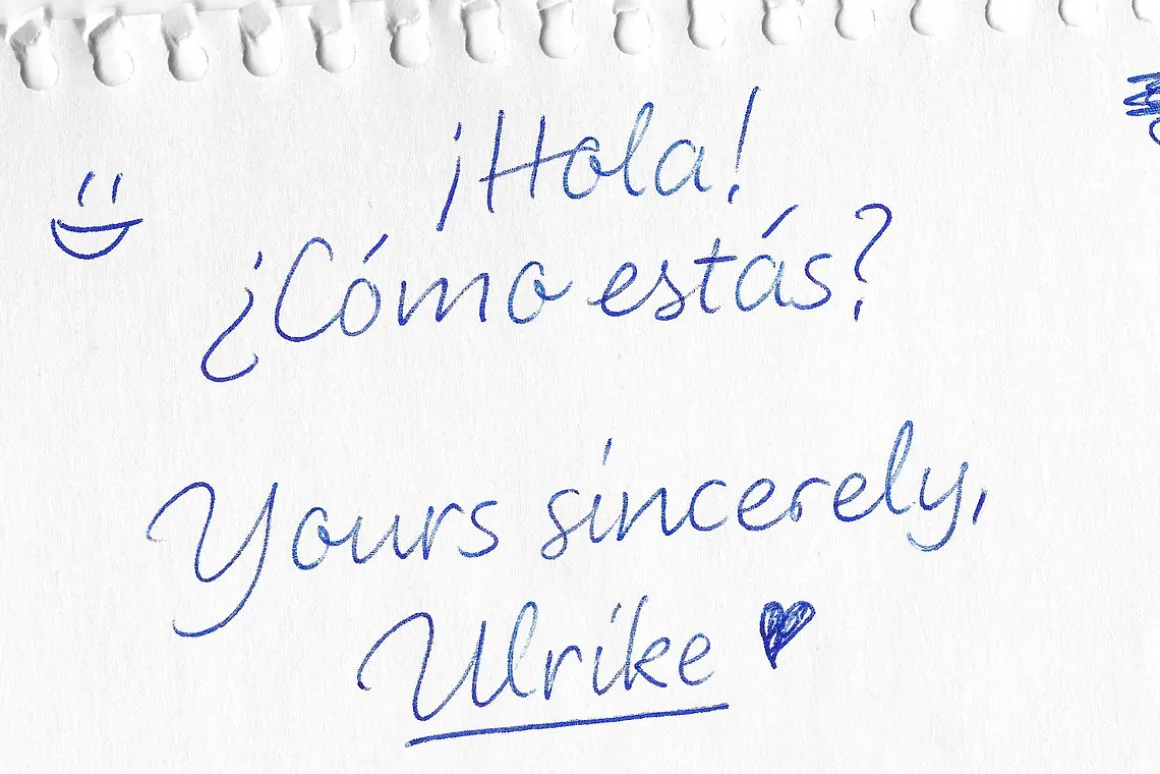 ¡Hola!
¿Cómo estás?
Yours sincerely,
Ulrike